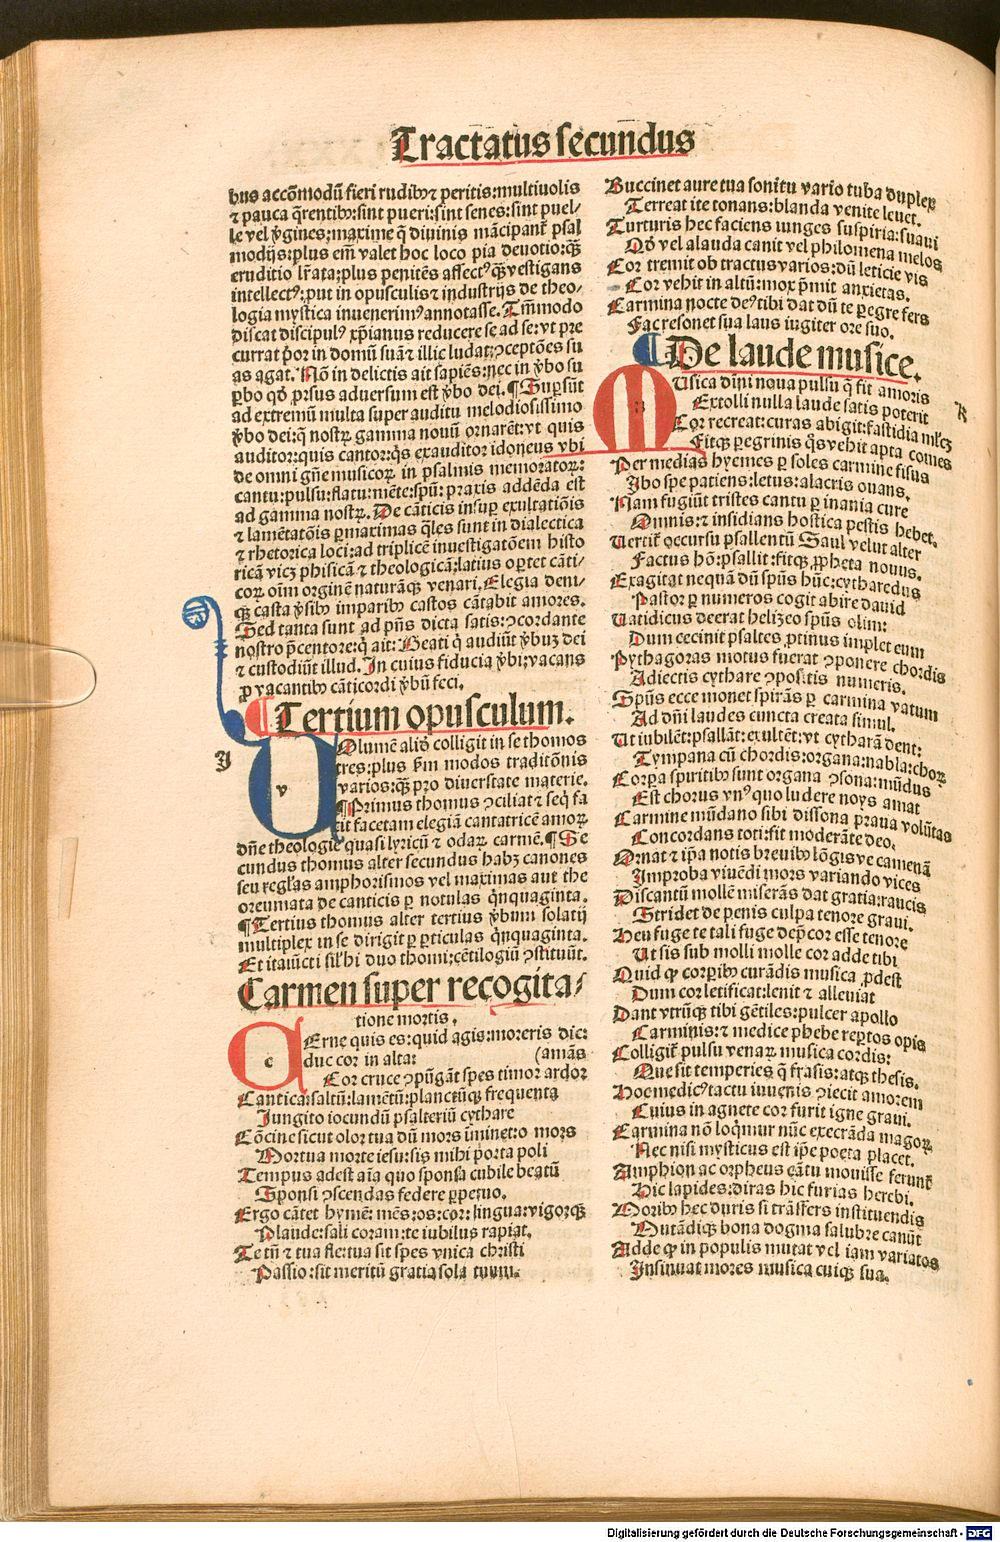 Tractatus secundus
bus accōmodū fieri rudibꝰ ⁊ peritis:multiuolis
⁊ pauca q̄rentibꝰ:sint pueri:sint senes:sint puel-
le vel ṽgines;maxime q̄ diuinis mācipant᷑ psal
modijs:plus em̄ valet hoc loco pia deuotio:qꝫ
eruditio lr̄ata;plus penitēs affectꝰ qꝫ vestigans
intellectꝰ:put in opusculis ⁊ industrijs de theo-
logia mystica inuenerimꝰ annotasse. Tm̄modo
discat discipulꝰ xp̄ianus reducere se ad se:vt pre
currat p̄or in domū suā ⁊ illic ludat:ꝯceptōes su
as agat. Nō in delictis ait sapiēs:nec in ṽbo su
ꝑbo qd̓ ꝓrsus aduersum est ṽbo dei. ¶ Suꝑsūt
ad extremū multa super auditu melodiosissimo
ṽbo dei:q̄ nostꝝ gamma nouū ornarēt:vt quis
auditor:quis cantor:q̄s exauditor idoneus vbi
de omni gn̄e musicoꝝ in psalmis memoratoꝝ:
cantu:pulsu:flatu:mēte:spū: praxis addēda est
ad gamma nostꝝ. De cāticis insuꝑ exultatiōis
⁊ lamētatōis ꝑmaximas q̄les sunt in dialectica
⁊ rhetorica loci:ad triplicē inuestigatōem histo
ricā vicꝫ phisicā ⁊ theologicā:latius oꝑtet cāti-
coꝝ oīm originē naturāqꝫ venari. Elegia deni-
qꝫ casta ṽsibꝰ imparibꝰ castos cātabit amores.
Sed tanta sunt ad pn̄s dicta satis:ꝯcordante
nostro p̄centore:q̓ ait: Beati q̓ audiūt ṽbuꝫ dei
⁊ custodiūt illud. In cuius fiducia ṽbi:vacans
ꝓ vacantibꝰ cāticordi ṽbū feci.
¶ Tertium opusculum.
Uolumē aliud̓ colligit in se thomos
tres:plus ẜm modos traditōnis
varios:qꝫ pro diuersitate materie.
¶ Primus thomus ꝯciliat ⁊ seq̄ fa
cit facetam elegiā cantatricē amoꝝ
dn̄e theologie quasi lyricū ⁊ odaꝝ carmē. ¶ Se
cundus thomus alter secundus habꝫ canones
seu regl̓as amphorismos vel maximas aut the
oreumata de canticis ꝑ notulas q̄nquaginta.
¶ Tertius thomus alter tertius ṽbum solatij
multiplex in se dirigit ꝑ ꝑticulas q̄nquaginta.
Et ita iūcti sil̓ hi duo thomi;cētilogiū ꝯstituūt.
Carmen super recogita-
tione mortis.
Cerne quis es:quid agis:moreris dic:
duc cor in alta: (amās
Cor cruce ꝯpūgāt spes timor ardor
Cantica:saltū:lamētū:planctūqꝫ frequenta
Jungito iocundū psalteriū cythare
Cōcine sicut olor tua dū mors im̄inet:o mors
Mortua morte iesu:sis mihi p̄orta poli
Tempus adest aīa quo sponsa cubile beatū
Sponsi ꝯscendas federe ꝑpetuo.
Ergo cātet hymē: mēs:os:cor:lingua:vigorqꝫ
Plaude:sali coram:te iubilus rapiat.
Te tn̄ ⁊ tua fle:tua sit spes vnica christi
Passio:sit meritū gratia sola tuum.
Buccinet aure tua sonitu vario tuba duplex
Terreat ite tonans:blanda venite leuet.
Turturis hec faciens iunges suspiria:suaui
Qd̓ vel alauda canit vel philomena melos
Cor tremit ob tractus varios:dū leticie vis
Cor vehit in altū:mox p̄mit anxietas.
Carmina nocte deꝰ tibi dat dū te ꝑegre fers
Fac resonet sua laus iugiter ore suo.
¶ De laude musice.
Musica dīni noua pulsu q̄ fit amoris
Extolli nulla laude satis poterit
Cor recreat:curas abigit:fastidia ml̓cꝫ
Fitqꝫ ꝑegrinis q̄s vehit apta comes
Per medias hyemes ꝑ soles carmine fisus
Ibo spe patiens:letus:alacris ouans.
Nam fugiūt tristes cantu ꝑ inania cure
Omnis:⁊ insidians hostica pestis hebet.
Uertit᷑ occursu psallentū Saul velut alter
Factus hō:psallit:fitqꝫ ꝓpheta nouus.
Exagitat nequā dū spūs hūc:cytharedus
Pastor ꝑ numeros cogit abire dauid
Uatidicus deerat helizeo spūs olim:
Dum cecinit psaltes ꝓtinus implet eum
Pythagoras motus fuerat ꝯponere chordis
Adiectis cythare ꝯpositis numeris.
Spūs ecce monet spirās ꝑ carmina vatum
Ad dn̄i laudes cuncta creata simul.
Ut iubilēt:psallāt:exultēt:vt cytharā dent:
Tympana cū chordis:organa:nabla:choꝝ
Corꝑa spiritibꝰ sunt organa ꝯsona:mūdus
Est chorus vnꝰ quo ludere noys amat
Carmine mūdano sibi dissona praua volūtas
Concordans toti:fit moderāte deo.
Ornat ⁊ ip̄a notis breuibꝰ lōgisve camenā
Improba viuēdi mors variando vices
Discantū mollē miserās dat gratia:raucis
Stridet de penis culpa tenore graui.
Heu fuge te tali fuge dep̄cor esse tenore
Ut sis sub molli molle cor adde tibi
Quid ꝙ corꝑibꝰ curādis musica ꝓdest
Dum cor letificat:lenit ⁊ alleuiat
Dant vtrūqꝫ tibi gētiles:pulcer apollo
Carminis:⁊ medice phebe reꝑtos opis
Colligit᷑ pulsu venaꝝ musica cordis:
Que sit temperies q̄ frasis:atqꝫ thesis.
Hoc medicꝰ tactu iuuenis ꝯiecit amorem
Cuius in agnete cor furit igne graui.
Carmina nō loq̓mur nūc execrāda magoꝝ
Nec nisi mysticus est ip̄e poeta placet.
Amphion ac orpheus cātu mouisse ferunt᷑
Hic lapides:diras hic furias herebi.
Moribꝰ hec duris si trāsfers instituendis
Mutādiqꝫ bona dogma salubre canūt
Adde ꝙ in populis mutat vel iam variatos
Insinuat mores musica cuiqꝫ sua.
Digitalisierung gefördert durch die Deutsche Forschungsgemeinschaft - DFG